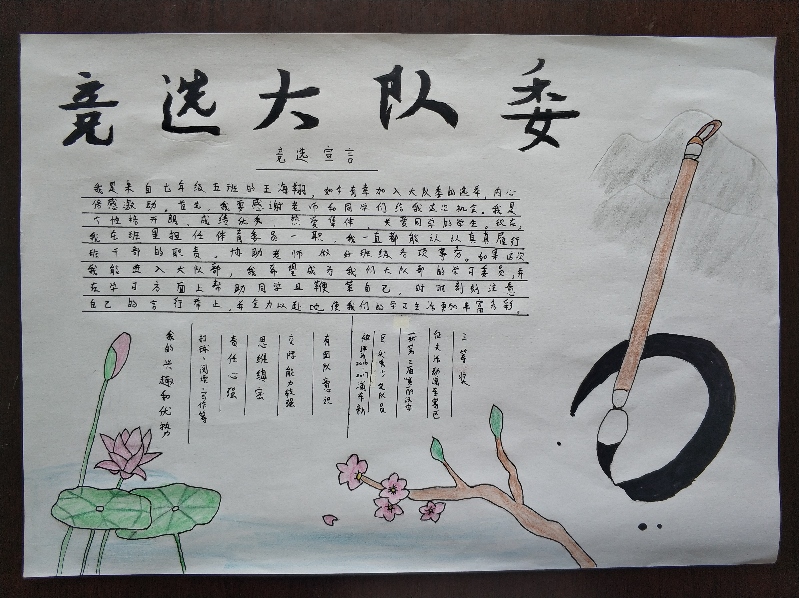 竞选大队委
竞选宣言
我是来自七年级五班的王海翔,如今有幸加入大队委的选举,内心
倍感激动。首先,我要感谢老师和同学们给我这次机会。我是
个性格开朗、成绩优秀、热爱集体、关爱同学的学生。现在,
我在班里担任体育委员一职,我一直都能认认真真履行
班干部的职责,协助老师做好班级各项事务。如果这次
我能进入大队部,我希望成为我们大队部的学习委员,并
在学习方面上帮助同学且鞭策自己,时时刻刻注意
自己的言行举止,并全力以赴地使我们的学习生活更加丰富多彩。
我的兴趣和优势
锻炼、阅读、写作等
责任心强
思维缜密
交际能力较强
有团队意识
区优秀少先队员
三等奖